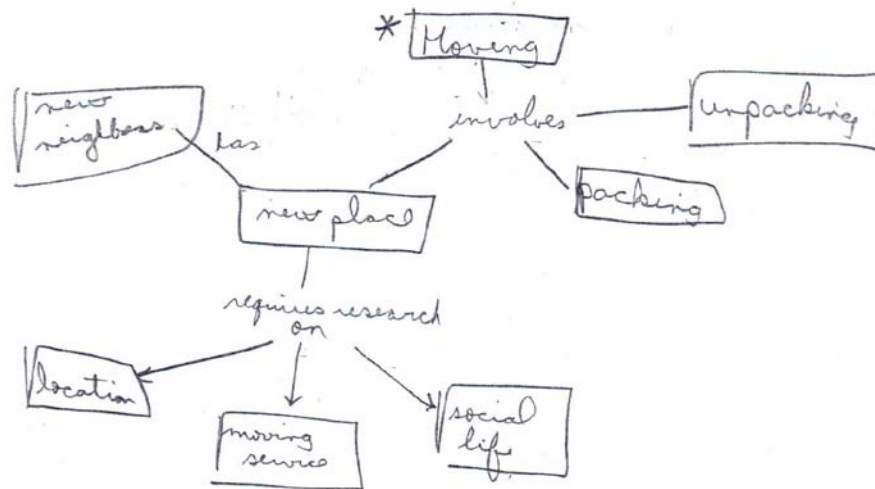 * Moving
involves
unpacking
packing
new
neighbors
has
new place
requires research
on
location
moving
service
social
life